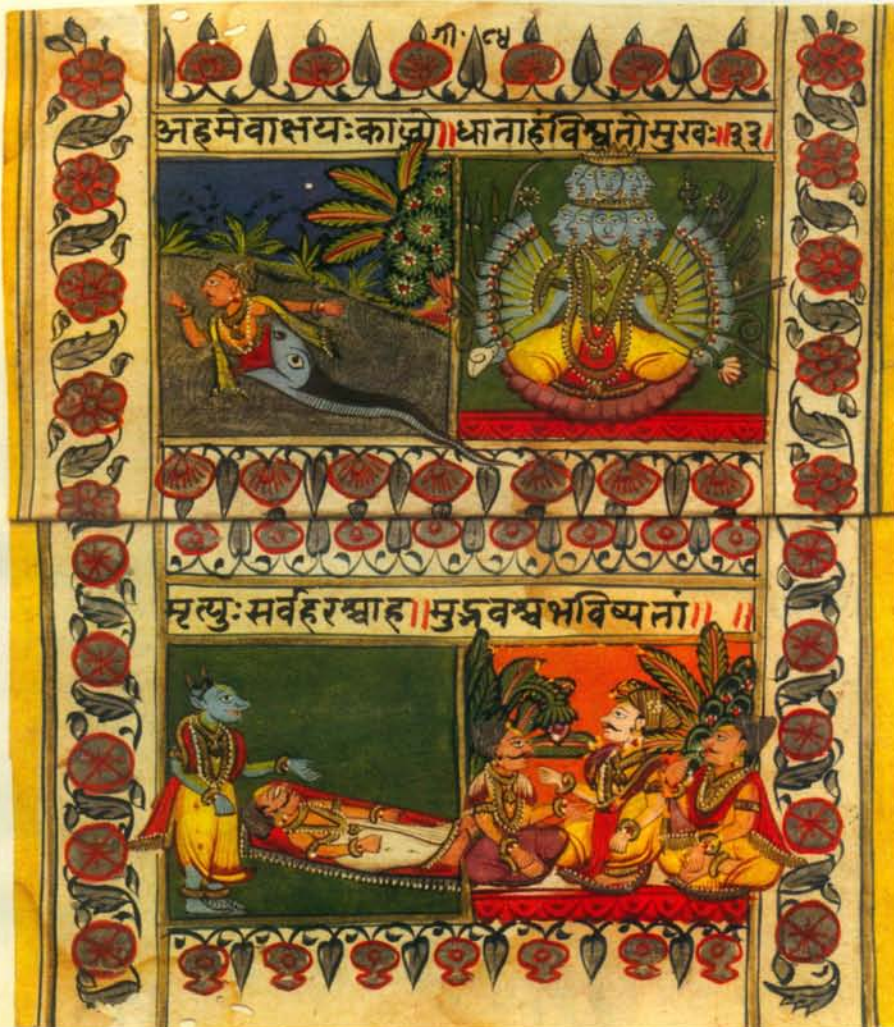 गी॰
अहमेवाक्षयःकालो॥धाताहंविश्वतोमुखः॥३३।
मृत्युःसर्वहरश्चाह॥मुद्भवश्चभविष्यतां॥ ॥